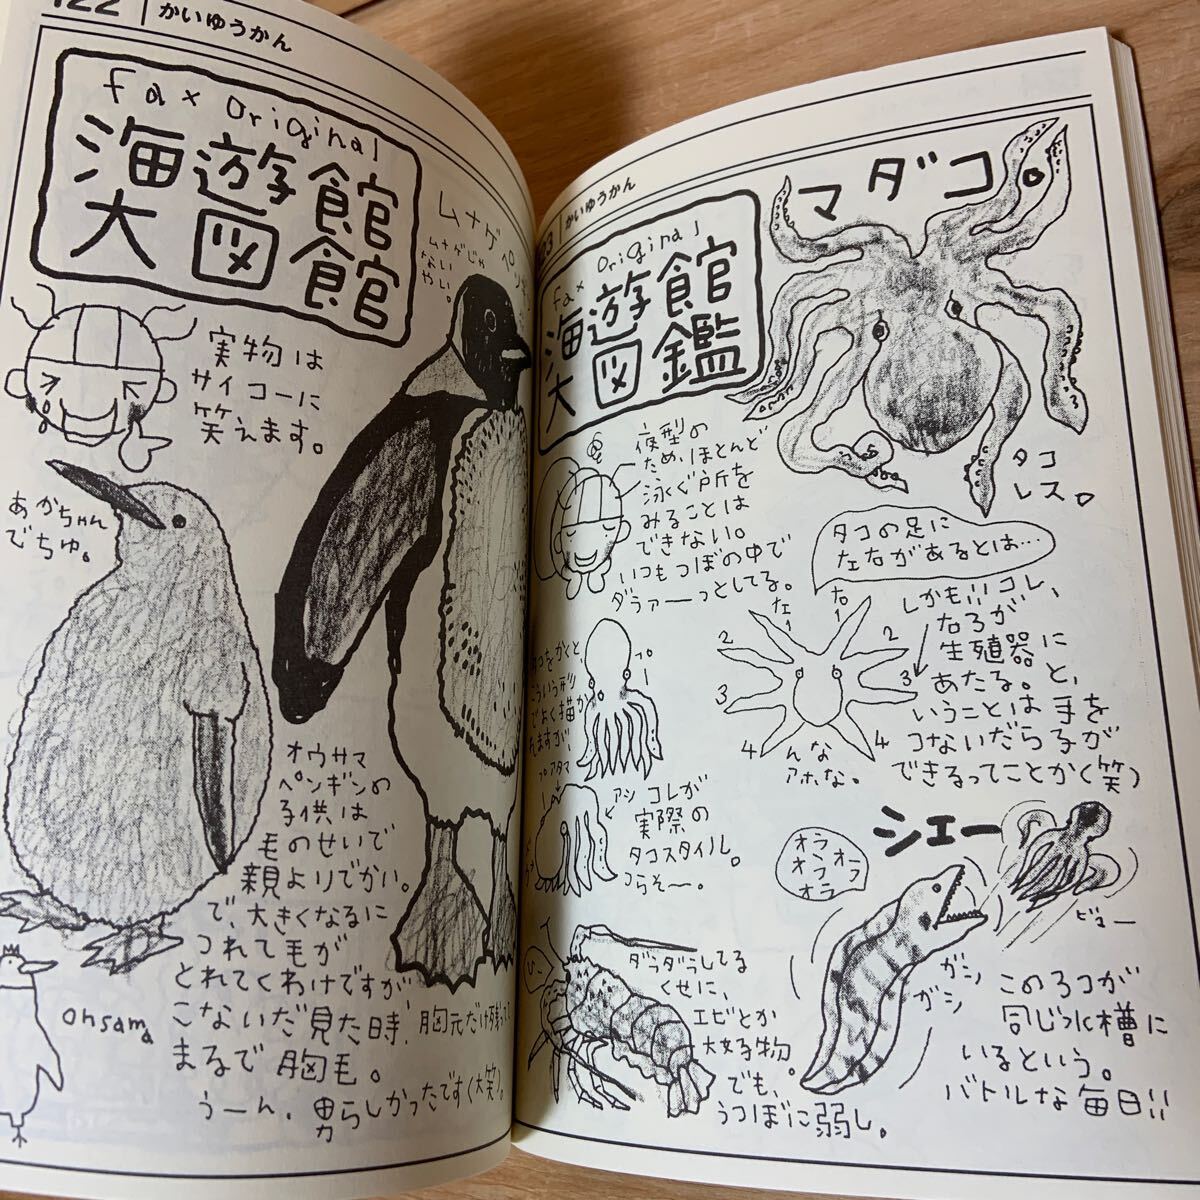 122
かいゆうかん
Fax Original
海遊館
大図館
ムナゲペンギン
ムナゲじゃ
ないやい。
実物は
サイコーに
笑えます。
あかちゃん
でちゅ。
オウサマ
ペンギンの
子供は
毛のせいで
親よりでかい。
で、大きくなるに
つれて毛が
とれてくわけですが
こないだ見た時、胸元だけ残ってて
まるで胸毛。
うーん、男らしかったです(大笑)。
ohsama
かいゆうかん
Fax Original
海遊館
大図鑑
マダコ。
タコ
レス。
夜型の
ため、ほとんど
泳ぐ所を
みることは
できない。
いつもつぼの中で
ダラァーーっとしてる。
タコの足に
左右があるとは…
しかも!!コレ、
右ろが
生殖器に
あたる。と、
いうことは手を
つないだらろが
できるってことか(笑)
左1
右1
2
2
3
3
4
4
んな
アホな。
こういう形
でよく描か
れますが、
アタマ
アシ
コレが
実際の
タコスタイル。
つらそー。
ダラダラしてる
くせに、
エビとか
大好物。
でも、
うつぼに弱し。
シェー
オラ
オラオラ
オラ
ガシ
ガシ
ビュー
このろコが
同じ水槽に
いるという。
バトルな毎日!!